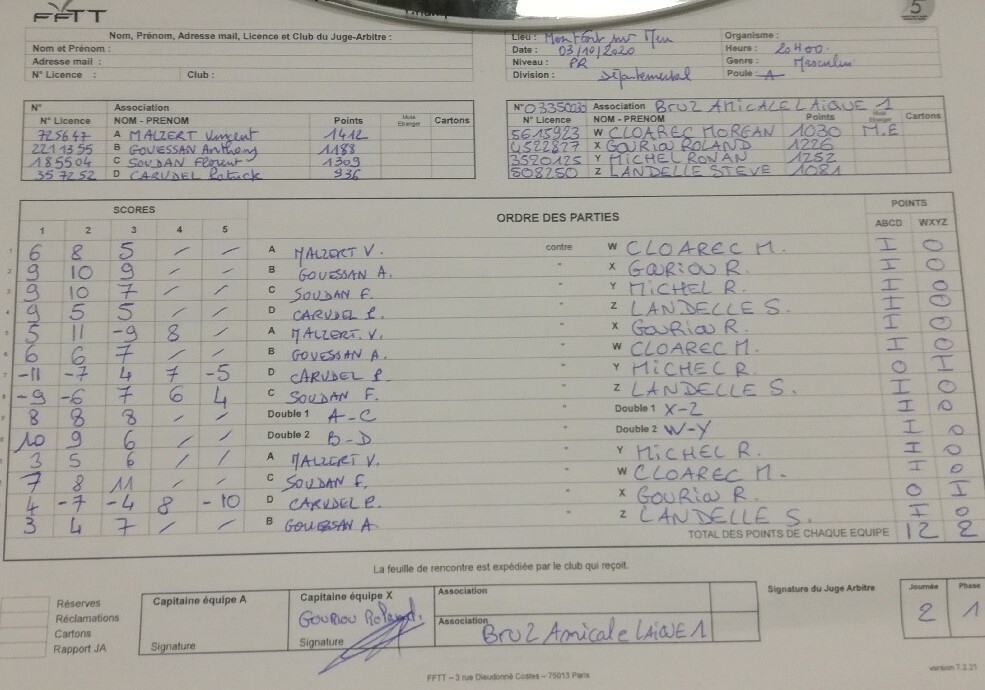 FFTT
5
Nom, Prénom, Adresse mail, Licence et Club du Juge-Arbitre :
Nom et Prénom :
Adresse mail :
N° Licence : Club :
Lieu : Montfort sur Meu Organisme :
Date : 03/10/2020 Heure : 20H00
Niveau : PR Genre : Masculin
Division : Départemental Poule : A
N° Association
N° Licence NOM - PRENOM Points Muté Etranger Cartons
725647 A MALZERT Vincent 1412
2211355 B GOUESSAN Anthony 1188
185504 C SOUDAN Florent 1309
357252 D CARUDEL Patrick 936
N° 03350030 Association BRUZ AMICALE LAIQUE 1
N° Licence NOM - PRENOM Points Muté Etranger Cartons
5615923 W CLOAREC MORGAN 1030 M.E
X GOURIOU ROLAND 1226
3520125 Y MICHEL RONAN 1252
508250 Z LANDELLE STEVE 1081
SCORES ORDRE DES PARTIES POINTS
1 2 3 4 5 ABCD WXYZ
6 8 5 / / A MALZERT V. contre W CLOAREC M. I O
9 10 9 / / B GOUESSAN A. " X GOURIOU R. I O
9 10 7 / / C SOUDAN F. " Y MICHEL R. I O
9 5 5 / / D CARUDEL P. " Z LANDELLE S. I O
5 11 -9 8 / A MALZERT. V. " X GOURIOU R. I O
6 6 7 / / B GOUESSAN A. " W CLOAREC M. I O
-11 -7 4 7 -5 D CARUDEL P. " Y MICHEL R. O I
-9 -6 7 6 4 C SOUDAN F. " Z LANDELLE S. I O
8 8 8 / / Double 1 A-C " Double 1 X-Z I O
10 9 6 / / Double 2 B-D " Double 2 W-Y I O
3 5 6 / / A MALZERT V. " Y MICHEL R. I O
7 8 11 / / C SOUDAN F. " W CLOAREC M. I O
4 -7 -4 8 -10 D CARUDEL P. " X GOURIOU R. O I
3 4 7 / / B GOUESSAN A. " Z LANDELLE S. I O
TOTAL DES POINTS DE CHAQUE EQUIPE 12 2
La feuille de rencontre est expédiée par le club qui reçoit.
Réserves
Réclamations
Cartons
Rapport JA
Capitaine équipe A
Signature
Capitaine équipe X
GOURIOU Roland.
Signature
Association
Association
Bruz Amicale LAIQUE 1
Signature du Juge Arbitre
Journée Phase
2 1
FFTT – 3 rue Dieudonné Costes – 75013 Paris
version 7.2.21